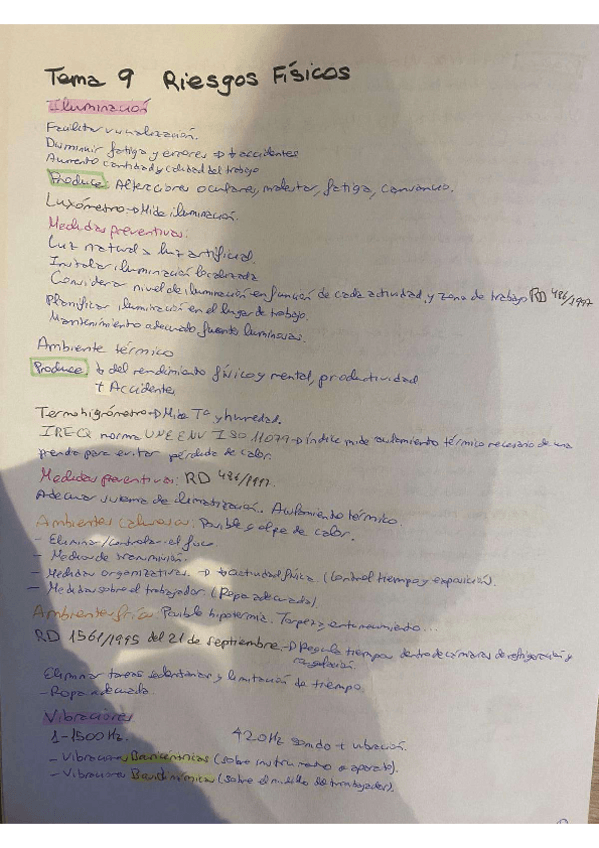 Tema 9 Riesgos Físicos
Iluminación
Facilitar visualización.
Disminuir fatiga y errores → ↓ accidentes
Aumento cantidad y calidad del trabajo
Produce: Alteraciones oculares, malestar, fatiga, cansancio.
Luxómetro → Mide iluminación.
Medidas preventivas:
Luz natural > luz artificial.
Instalar iluminación localizada
Considerar nivel de iluminación en función de cada actividad y zona de trabajo RD 486/1997
Planificar iluminación en el lugar de trabajo.
Mantenimiento adecuado fuentes luminosas.
Ambiente térmico
Produce: ↓ del rendimiento físico y mental, productividad
+ Accidentes
Termohigrómetro → Mide Tª y humedad.
IREQ norma UNE ENV ISO 11079 → Índice mide aislamiento térmico necesario de una
prenda para evitar pérdida de calor.
Medidas preventivas: RD 486/1997.
Adecuar sistema de climatización. Aislamiento térmico.
Ambientes calurosos: Posible golpe de calor.
- Eliminar/Controlar el foco
- Medios de transmisión.
- Medidas organizativas. → ↓ actividad física (Control tiempo y exposición).
- Medidas sobre el trabajador (Ropa adecuada).
Ambientes fríos: Posible hipotermia. Torpeza, entumecimiento...
RD 1561/1995 del 21 de septiembre. → Regula tiempos dentro de cámaras de refrigeración y
congelación.
Eliminar tareas sedentarias y limitación de tiempo
- Ropa adecuada.
Vibraciones
1-1500Hz. <20Hz sonido + vibración.
- Vibraciones (sobre instrumentos o aparato).
- Vibraciones (sobre el del trabajador).